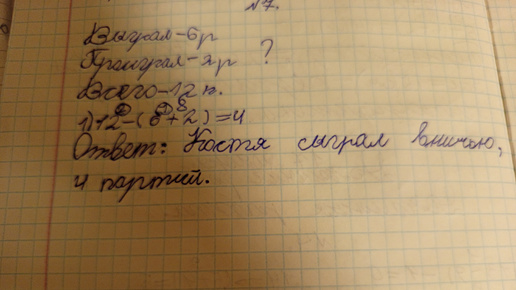 №7.
Выграл-6р
Проиграл-2р ?
Всего-12п.
1)12-(6+2)=4
Ответ: Костя сыграл вничью,
4 партий.